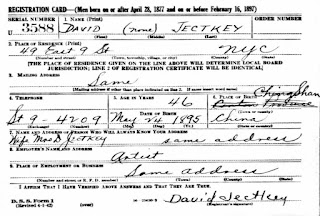 REGISTRATION CARD—(Men born on or after April 28, 1877 and on or before February 16, 1897)
SERIAL NUMBER 1. NAME (Print) ORDER NUMBER
U 3588 DAVID (none) JECTKEY
(First) (Middle) (Last)
2. PLACE OF RESIDENCE (Print)
49 East 9 St NYC
(Number and street) (Town, township, village, or city) (County) (State)
[THE PLACE OF RESIDENCE GIVEN ON THE LINE ABOVE WILL DETERMINE LOCAL BOARD
JURISDICTION; LINE 2 OF REGISTRATION CERTIFICATE WILL BE IDENTICAL]
3. MAILING ADDRESS
Same
[Mailing address if other than place indicated on line 2. If same insert word same]
4. TELEPHONE 5. AGE IN YEARS 6. PLACE OF BIRTH
46 Chungshan
DATE OF BIRTH (Town or county)
St 9-4209 May 24 1895 China
(Exchange) (Number) (Mo.) (Day) (Yr.) (State or country)
7. NAME AND ADDRESS OF PERSON WHO WILL ALWAYS KNOW YOUR ADDRESS
Wife Mrs Jectkey same address
8. EMPLOYER'S NAME AND ADDRESS
Artist
9. PLACE OF EMPLOYMENT OR BUSINESS
Same address
(Number and street or R. F. D. number) (Town) (County) (State)
I AFFIRM THAT I HAVE VERIFIED ABOVE ANSWERS AND THAT THEY ARE TRUE.
D. S. S. Form 1
(Revised 4-1-42) (over) David Jectkey